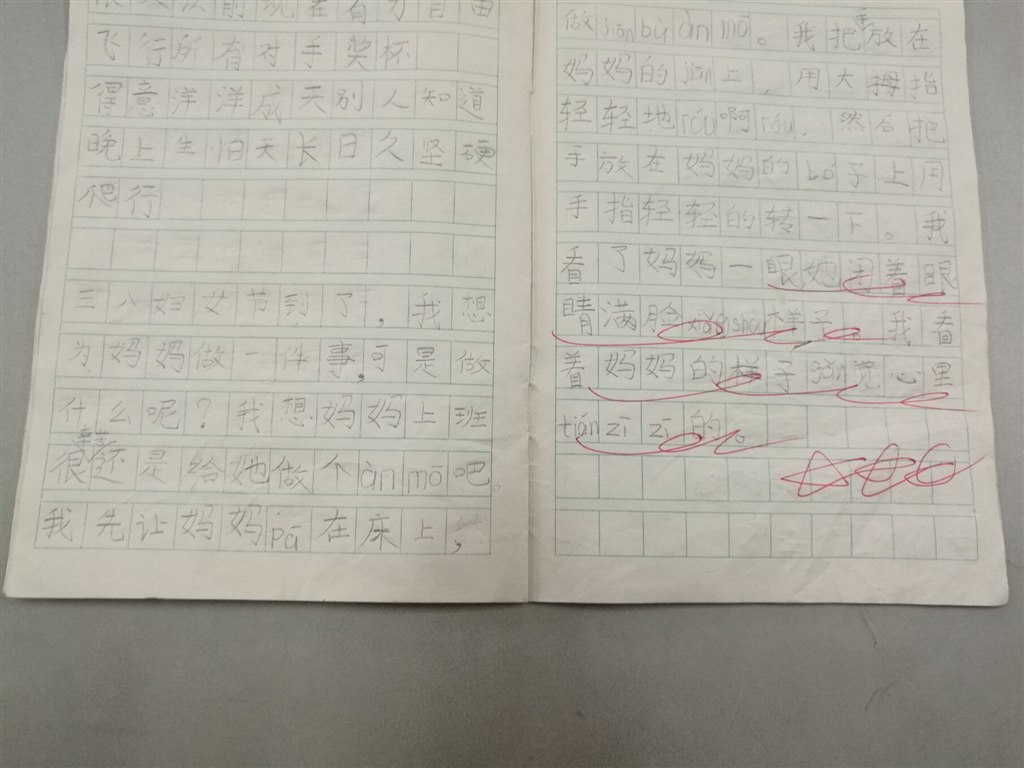 飞行所有对手奖杯
得意洋洋成天别人知道
晚上生怕天长日久坚硬
爬行
三八妇女节到了，我想
为妈妈做一件事，可是做
什么呢？我想妈妈上班
很还是给她做个àn mō吧。
我先让妈妈pā在床上，
做jiān bù àn mō。我把手放在
妈妈的jiān上，用大拇指
轻轻地róu啊róu，然后把
手放在妈妈的bó子上用
手指轻轻的转一下。我
看了妈妈一眼她闭着眼
睛满脸xiǎng shòu样子。我看
着妈妈的样子gǎn觉心里
tián zī zī的。